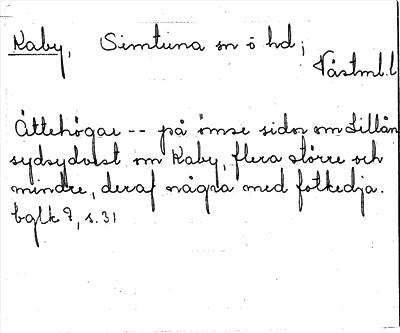 Kaby, Simtuna sn o hd;
Västml.l
Ättehögar -- på ömse sidor om Lillån
sydsydväst om Kaby, flera större och
mindre, deraf några med fotkedja.
bglk 9, s. 31